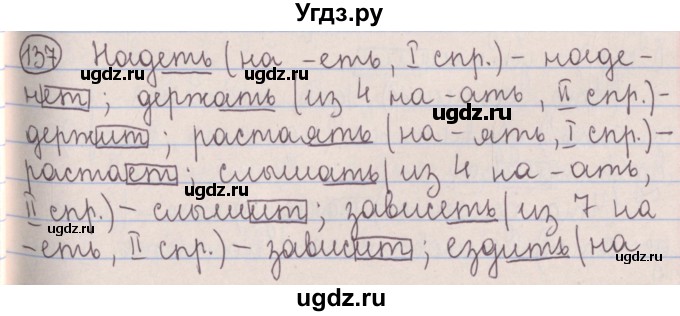 Угдз.ру
137 Надеть (на -еть, I спр.) - наде-
нет; держать (из 4 на -ать, II спр.) -
держит; растаять (на -ять, I спр.) -
растает; слышать (из 4 на -ать,
II спр.) - слышит; зависеть (из 7 на
-еть, II спр.) - зависит; ездить (на
ugdz.ru
ugdz.ru
ugdz.ru
ugdz.ru
ugdz.ru
ugdz.ru
ugdz.ru
ugdz.ru
ugdz.ru
ugdz.ru